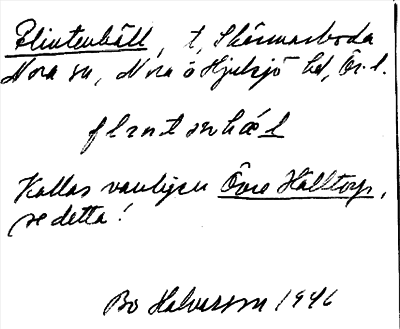 Flintenhäll, t, Skärmarboda
Nora sn, Nora o Hjulsjö hd, Ör. l.
flɪntenhæl
Kallas vanligen Övre Hälltorp,
se detta!
Bo Halvarsson 1946